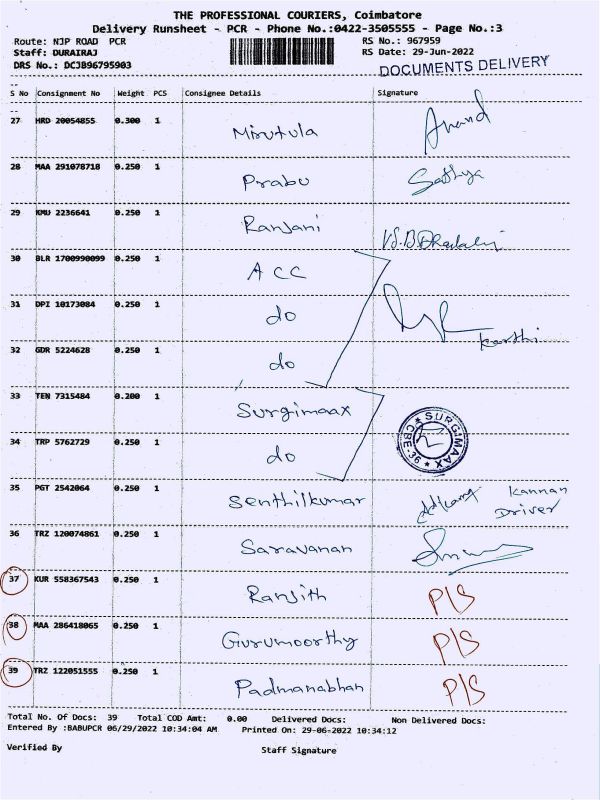 THE PROFESSIONAL COURIERS, Coimbatore
Delivery Runsheet - PCR - Phone No.:0422-3505555 - Page No.:3
Route: NJP ROAD PCR RS No.: 967959
Staff: DURAIRAJ RS Date: 29-Jun-2022
DRS No.: DCJ896795903 DOCUMENTS DELIVERY
S No Consignment No Weight PCS Consignee Details Signature
27 HRD 20054855 0.300 1 Mirutula Anand
28 MAA 291078718 0.250 1 Prabu Sathya
29 KMU 2236641 0.250 1 Ranjani
30 BLR 1700990099 0.250 1 ACC
31 DPI 10173084 0.250 1 do Karthi
32 GDR 5224628 0.250 1 do
33 TEN 7315484 0.200 1 Surgimaax
34 TRP 5762729 0.250 1 do SURGIMAAX CBE-36
35 PGT 2542064 0.250 1 Senthilkumar Kannan
Driver
36 TRZ 120074861 0.250 1 Saravanan
37 KUR 558367543 0.250 1 Ranjith P/S
38 MAA 286418065 0.250 1 Gurumoorthy P/S
39 TRZ 122051555 0.250 1 Padmanabhan P/S
Total No. Of Docs: 39 Total COD Amt: 0.00 Delivered Docs: Non Delivered Docs:
Entered By :BABUPCR 06/29/2022 10:34:04 AM Printed On: 29-06-2022 10:34:12
Verified By Staff Signature